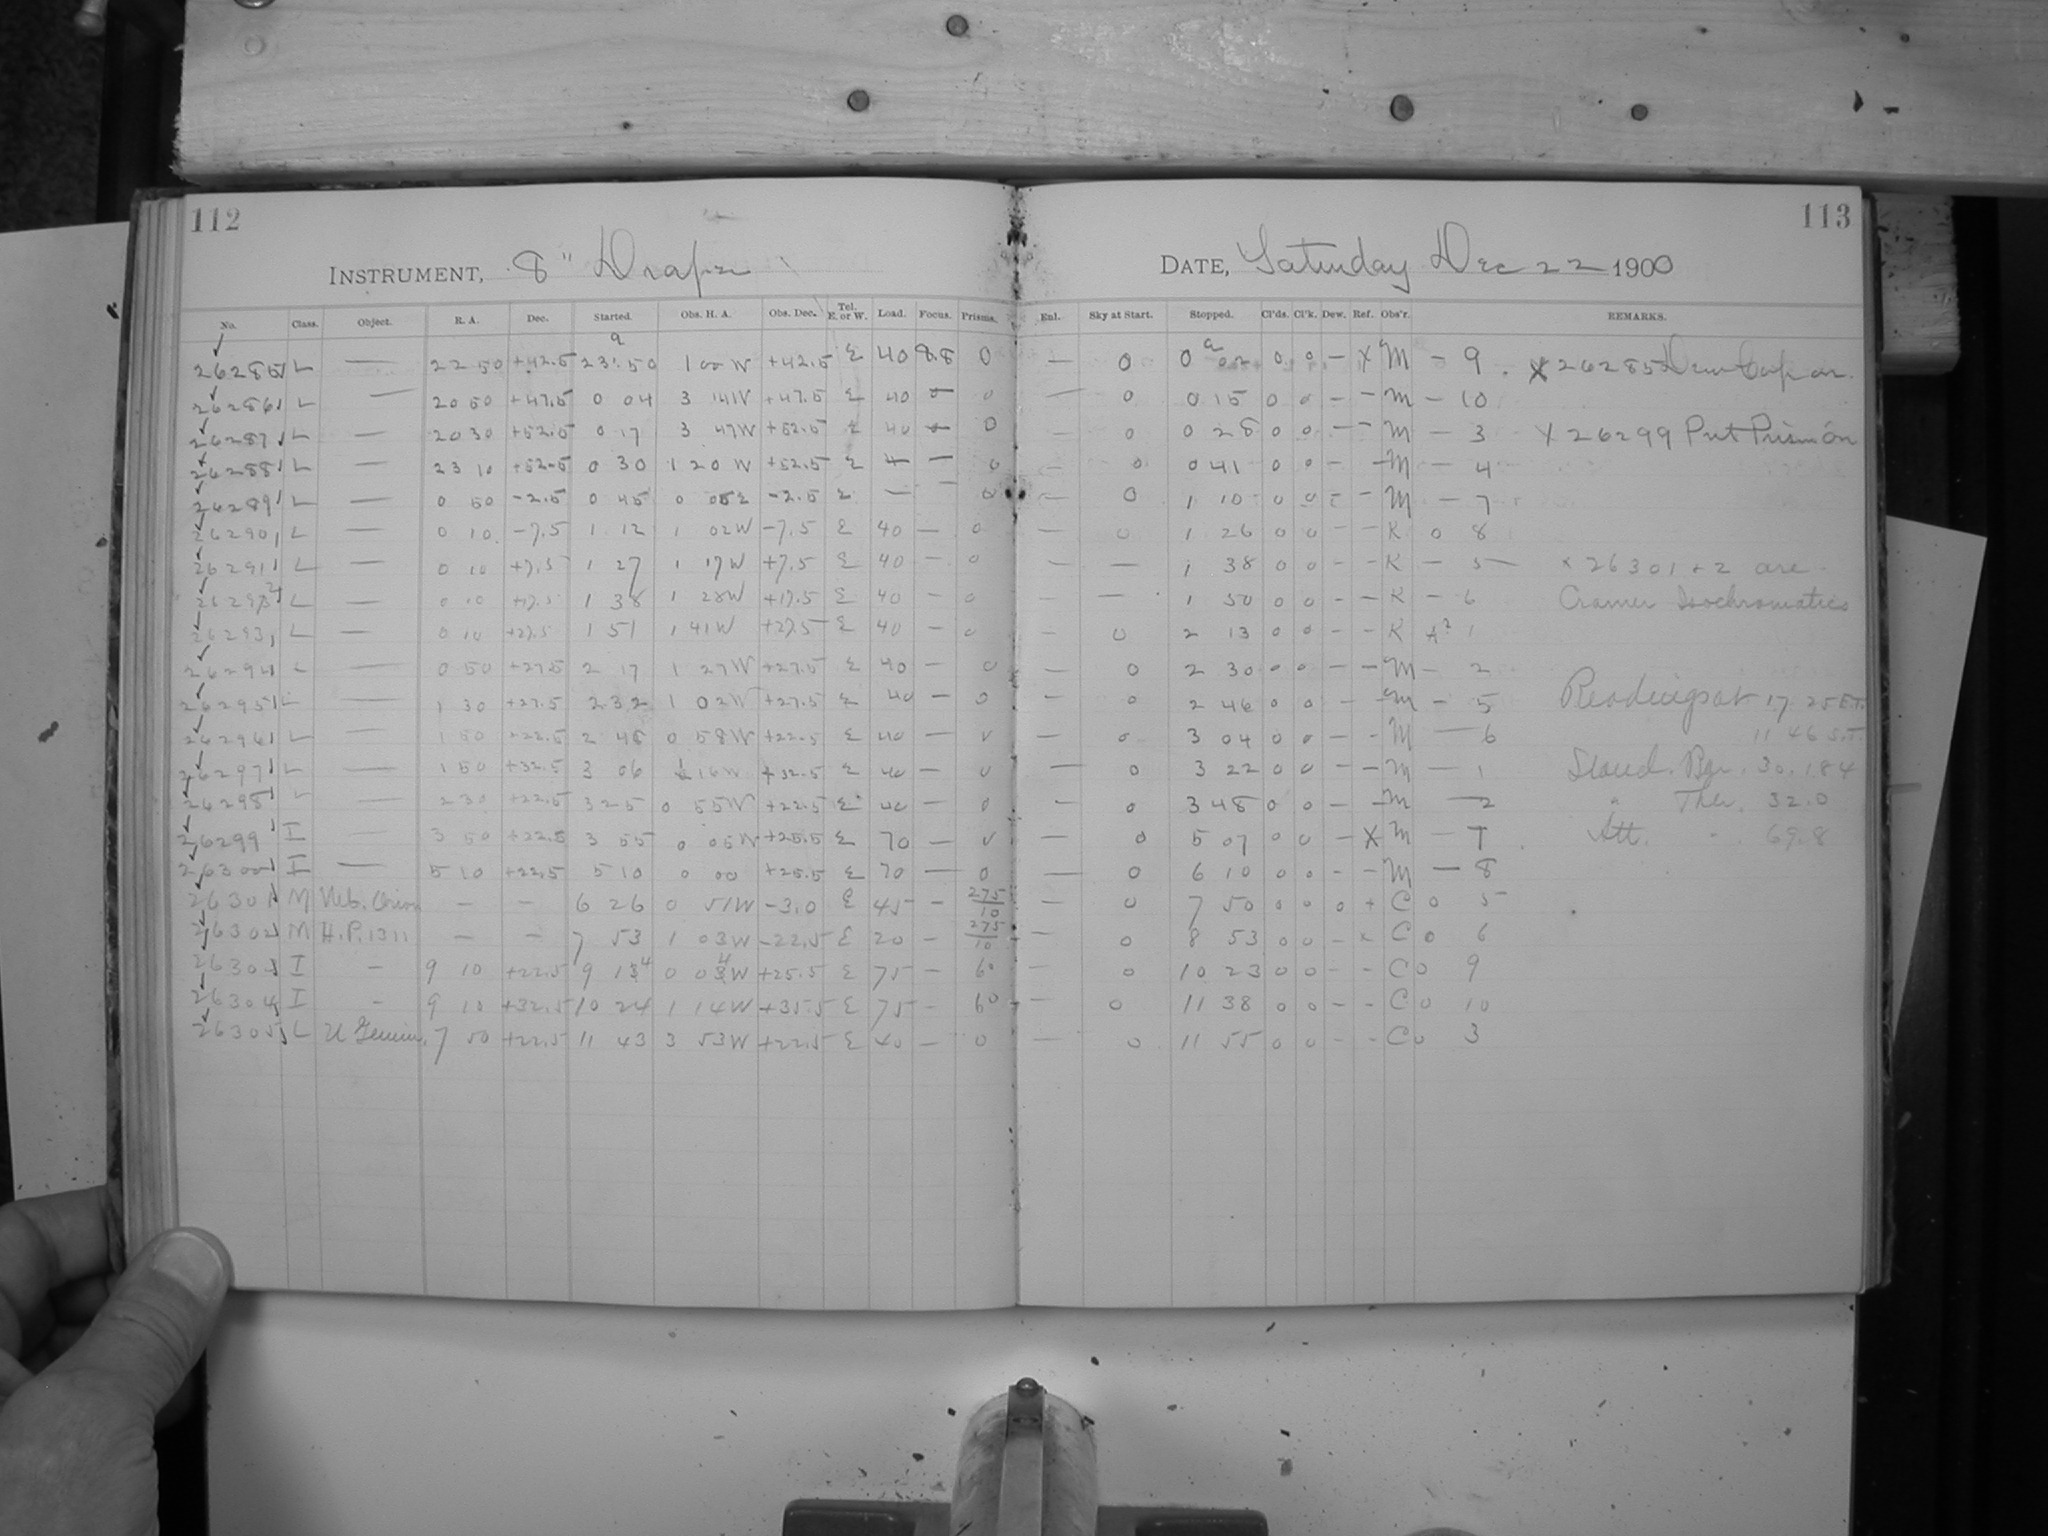 112
INSTRUMENT, 8" Draper
No. Class. Object. R. A. Dec. Started. Obs. H. A. Obs. Dec. Tel. E. or W. Load. Focus. Prisms.
26285 L — 22 50 +42.5 23 50 1 00 W +42.5 E 40 8.8 0
26286 L — 20 50 +47.5 0 04 3 14 W +47.5 E 40 — 0
26287 L — 20 30 +52.5 0 17 3 47 W +52.5 E 40 — 0
26288 L — 23 10 +52.5 0 30 1 20 W +52.5 E — — 0
26289 L — 0 50 -2.5 0 45 0 05 E -2.5 E — — 0
26290 L — 0 10 -7.5 1 12 1 02 W -7.5 E 40 — 0
26291 L — 0 10 +7.5 1 27 1 17 W +7.5 E 40 — 0
26292 L — 0 10 +17.5 1 38 1 28 W +17.5 E 40 — 0
26293 L — 0 10 +27.5 1 51 1 41 W +27.5 E 40 — 0
26294 L — 0 50 +27.5 2 17 1 27 W +27.5 E 40 — 0
26295 L — 1 30 +27.5 2 32 1 02 W +27.5 E 40 — 0
26296 L — 1 50 +22.5 2 48 0 58 W +22.5 E 40 — 0
26297 L — 1 50 +32.5 3 06 1 16 W +32.5 E 40 — 0
26298 L — 2 30 +22.5 3 25 0 55 W +22.5 E 40 — 0
26299 I — 3 50 +22.5 3 55 0 05 W +25.5 E 70 — 0
26300 I — 5 10 +22.5 5 10 0 00 +25.5 E 70 — 0
26301 M Neb. Orion — — 6 26 0 51 W -3.0 E 45 — 275/10
26302 M H.P. 1311 — — 7 53 1 03 W -22.5 E 20 — 275/10
26303 I - 9 10 +22.5 9 14 0 04 W +25.5 E 75 — 60
26304 I - 9 10 +32.5 10 24 1 14 W +35.5 E 75 — 60
26305 L U Gemin. 7 50 +22.5 11 43 3 53 W +22.5 E 40 — 0
113
DATE, Saturday Dec 22 1900
Enl. Sky at Start. Stopped. Cl'ds. Cl'k. Dew. Ref. Obs'r. REMARKS.
— 0 0 02 0 0 — X M — 9 X 26285 Dew Cap on.
— 0 0 15 0 0 — — M — 10
— 0 0 28 0 0 — — M — 3 X 26299 Put Prism on
— 0 0 41 0 0 — — M — 4
— 0 1 10 0 0 — — M — 7
— 0 1 26 0 0 — — K 0 8
— — 1 38 0 0 — — K — 5 x 26301 + 2 are
— — 1 50 0 0 — — K — 6 Cramer Isochromatics
— 0 2 13 0 0 — — K 1
— 0 2 30 0 0 — — M — 2
— 0 2 46 0 0 — — M — 5 Readings at 17 25 E.T.
— 0 3 04 0 0 — — M — 6 11 46 S.T.
— 0 3 22 0 0 — — M — 1 Stand. Bar. 30.184
— 0 3 48 0 0 — — M — 2 " Ther. 32.0
— 0 5 07 0 0 — X M — 7 Att. " 69.8
— 0 6 10 0 0 — — M — 8
— 0 7 50 0 0 0 + C 0 5
— 0 8 53 0 0 — x C 0 6
— 0 10 23 0 0 — — C 0 9
— 0 11 38 0 0 — — C 0 10
— 0 11 55 0 0 — — C 0 3